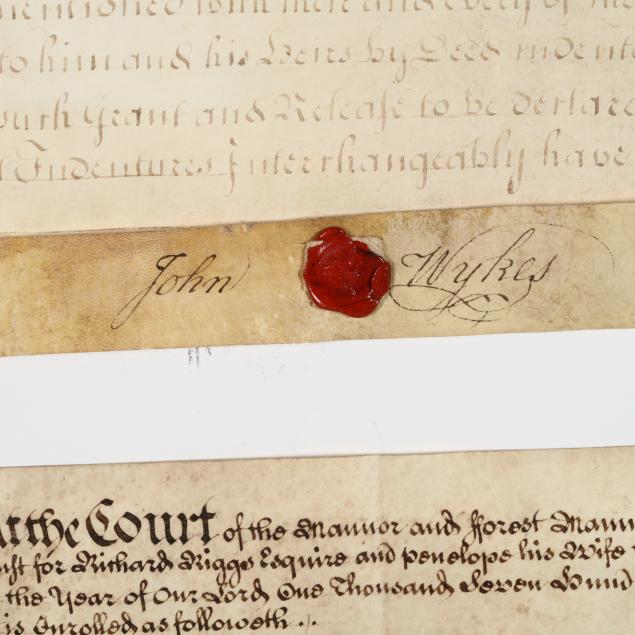 mentioned with their and every of
to him and his Heirs by Deed
such Grant and Release to be declare
Indentures Interchangeably have
John Wykes
At the Court of the Mannor and fforest Mann
for Richard Riggs Esquire and Penelope his Wife
the Year of Our Lord One Thousand Seven Hund
is Enrolled as followeth